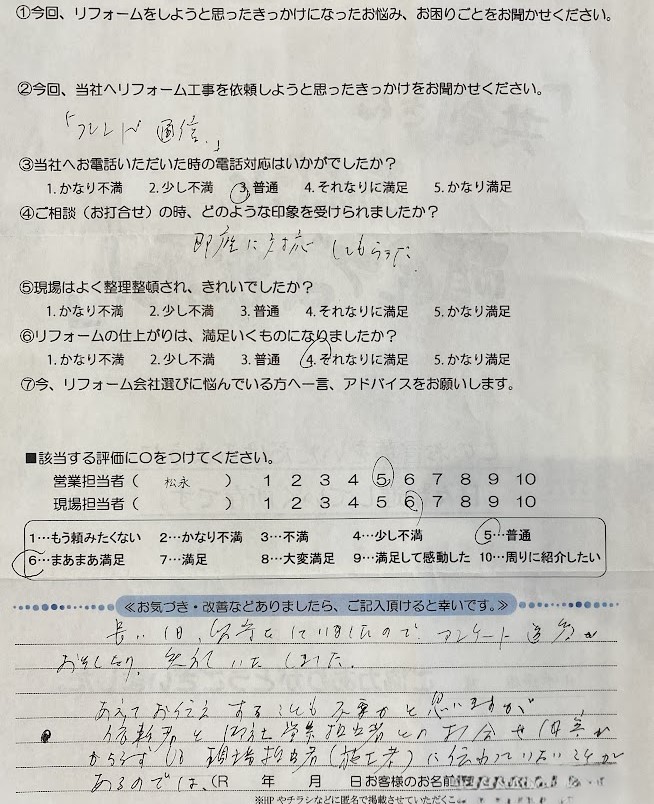 ①今回、リフォームをしようと思ったきっかけになったお悩み、お困りごとをお聞かせください。
②今回、当社へリフォーム工事を依頼しようと思ったきっかけをお聞かせください。
「フレンド通信」
③当社へお電話いただいた時の電話対応はいかがでしたか？
1.かなり不満 2.少し不満 3.普通 4.それなりに満足 5.かなり満足
④ご相談（お打合せ）の時、どのような印象を受けられましたか？
即座に対応してもらった
⑤現場はよく整理整頓され、きれいでしたか？
1.かなり不満 2.少し不満 3.普通 4.それなりに満足 5.かなり満足
⑥リフォームの仕上がりは、満足いくものになりましたか？
1.かなり不満 2.少し不満 3.普通 4.それなりに満足 5.かなり満足
⑦今、リフォーム会社選びに悩んでいる方へ一言、アドバイスをお願いします。
■該当する評価に〇をつけてください。
営業担当者（ 松永 ） 1 2 3 4 5 6 7 8 9 10
現場担当者（ ） 1 2 3 4 5 6 7 8 9 10
1…もう頼みたくない 2…かなり不満 3…不満 4…少し不満 5…普通
6…まあまあ満足 7…満足 8…大変満足 9…満足して感動した 10…周りに紹介したい
≪お気づき・改善などありましたら、ご記入頂けると幸いです。≫
長い間、留守をしていましたので アンケート返answerが
お そくなり、失礼いたしました。
あえてお伝えすることも不要かと思いますが
依頼者と御社営業担当者との打合せ内容が
必らずしも現場担当者（施工者）に伝わっていないことが
あるのでは、(R 年 月 日 お客様のお名前
※HPやチラシなどに匿名で掲載させていただくこ